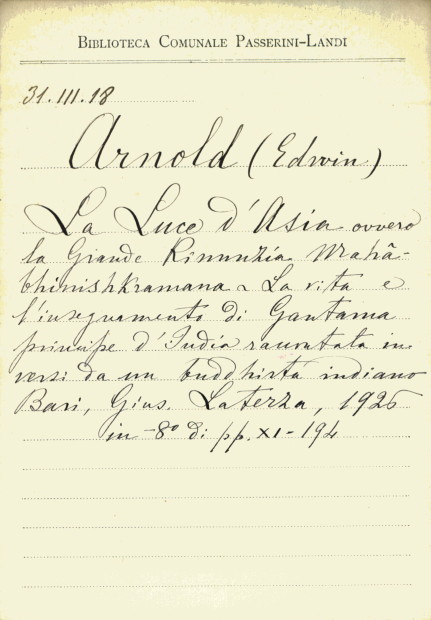 BIBLIOTECA COMUNALE PASSERINI-LANDI
31.III.18
Arnold (Edwin)
La Luce d'Asia ovvero
la Grande Rinunzia Mahâ-
bhinishkramana - La vita e
l'insegnamento di Gautama
principe d'India raccontata in
versi da un buddhista indiano
Bari, Gius. Laterza, 1926
in-8º di pp. XI-194